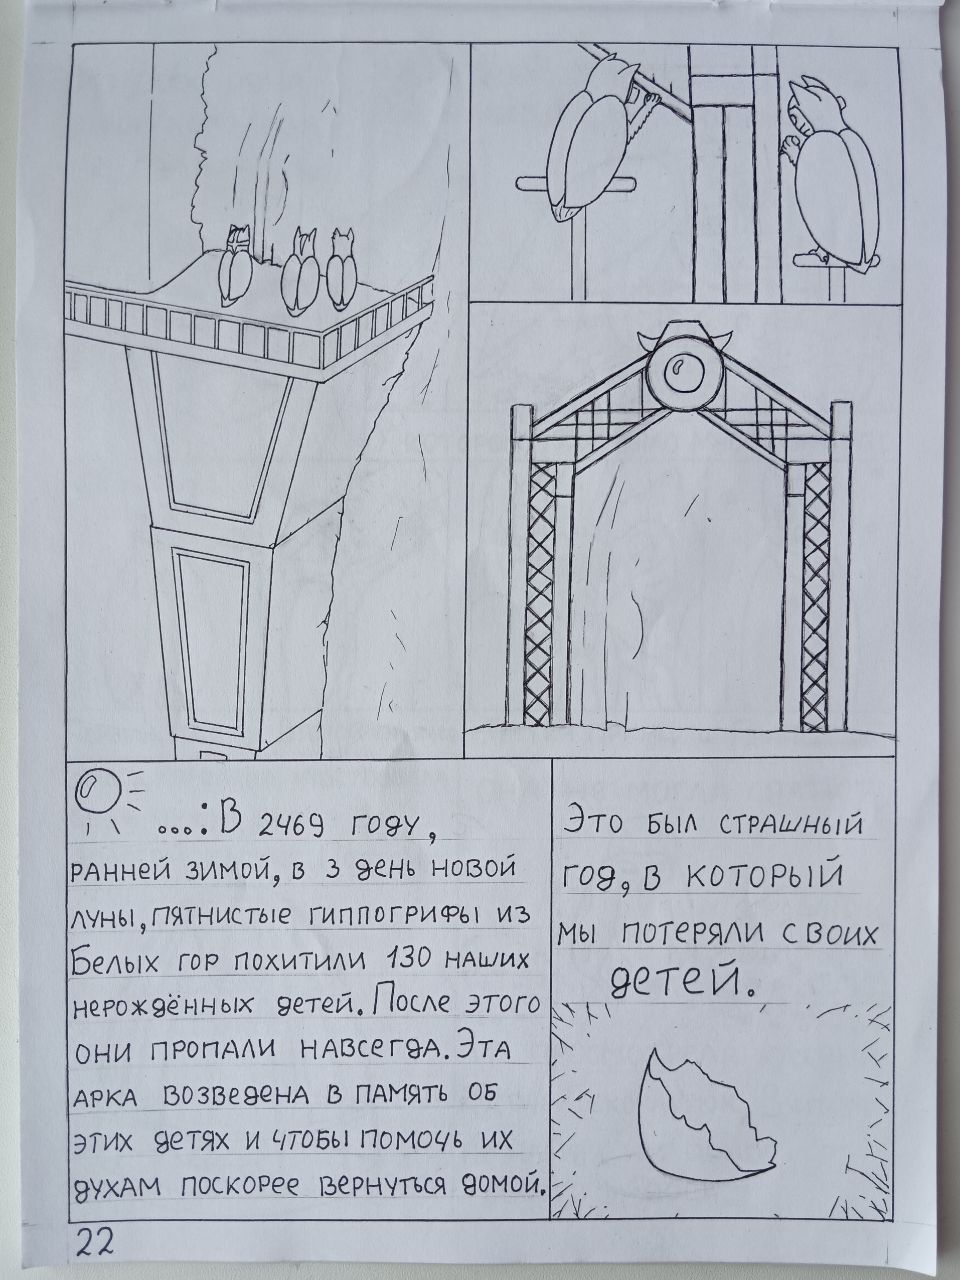 ...: В 2469 году,
ранней зимой, в 3 день новой
луны, пятнистые гиппогрифы из
Белых гор похитили 130 наших
нерождённых детей. После этого
они пропали навсегда. Эта
арка возведена в память об
этих детях и чтобы помочь их
духам поскорее вернуться домой.
Это был страшный
год, в который
мы потеряли своих
детей.
22